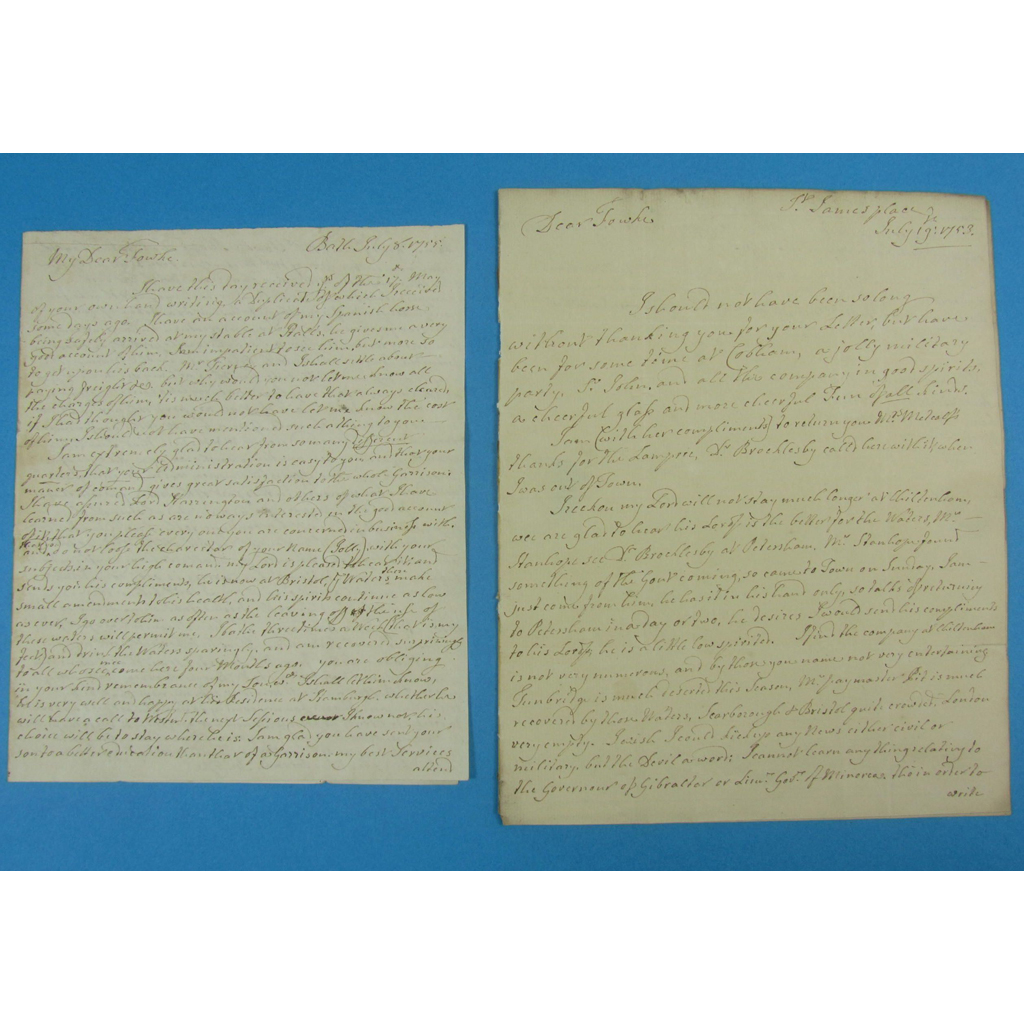 Bath July 8. 1755.
My Dear Fowke.
I have this day received yrs of the 17th May
of your own hand writing, a Duplicate of which I received
some days ago. I have an account of my Spanish horse
being safely arrived at my stable at he gives me a very
good account of him, I am impatient to see him, but more so
to get upon his back. Mr and I shall settle about
paying freight &c. but why would you not let me know all
the charges of him, tis much better to have that always cleared,
if I had thought you would not have let me know the cost
of him, I should not have mentioned such a thing to you
I am extremely glad to hear from so many different
quarters, that your administration is easy to you and that your
manner of comand gives great satisfaction to the whole Garrison.
I have assured Lord Harrington and others of what I have
learned from such as are no ways interested in the good account
of it, that you please every one you are concerned in business with,
and do not loose the charecter of your Name (Jolly) with your
subjects in your high comand. my Lord is pleased to hear it, and
sends you his compliments, he is now at Bristol, those Waters make
small amendments to his health, and his spirits continue as low
as ever, I go over to him as often as the leaving off the use of
these waters will permit me. I bathe three times a week (that is my
feet) and drink the Waters sparingly, and am recovered surprisingly
to all who saw me come here four Months ago. you are obliging
in your kind remembrance of my I shall let him know,
he is very well and happy at his Residence at whether he
will have a call to the next Sessions I know not, his
choice will be to stay where he is. I am glad you have sent your
son to a better education than that of a Garrison, my best Services
attend
St James place
July 19th. 1753.
Dear Fowke
I should not have been so long
without thanking you for your Letter, but have
been for some time at Cobham, a jolly military
party. Sr. John, and all the company in good spirits,
a cheerful glass and more cheerful Fun of all kinds.
I am (with her compliments) to return you Mrs Metcalfs
thanks for the Lampree, Dr. Brocklesby called here with it, when
I was out of Town.
I reckon my Lord will not stay much longer at Chiltenham,
wee are glad to hear his Lordsp is the better for the Waters, Mr.
Stanhope see Dr. Brocklesby at Petersham. Mr. Stanhope found
something of the Gout coming, so came to Town on Sunday. I am
just come from him, he has it in his hand only, so talks of returning
to Petersham in a day or two, he desires I would send his compliments
to his Lordsp, he is a little low spirited. I find the company at Chiltenham
is not very numerous, and by those you name not very entertaining
Tunbridge is much deserted this Season, Mr. paymaster Pit is much
recovered by those Waters, Scarborough & Bristol quite crowded. London
very empty. I wish I could pick up any News either civil or
military, but the Devil a word; I cannot learn any thing relating to
the Governour of Gibralter or Lieut. Govr. of Minorca, tho in order to
write